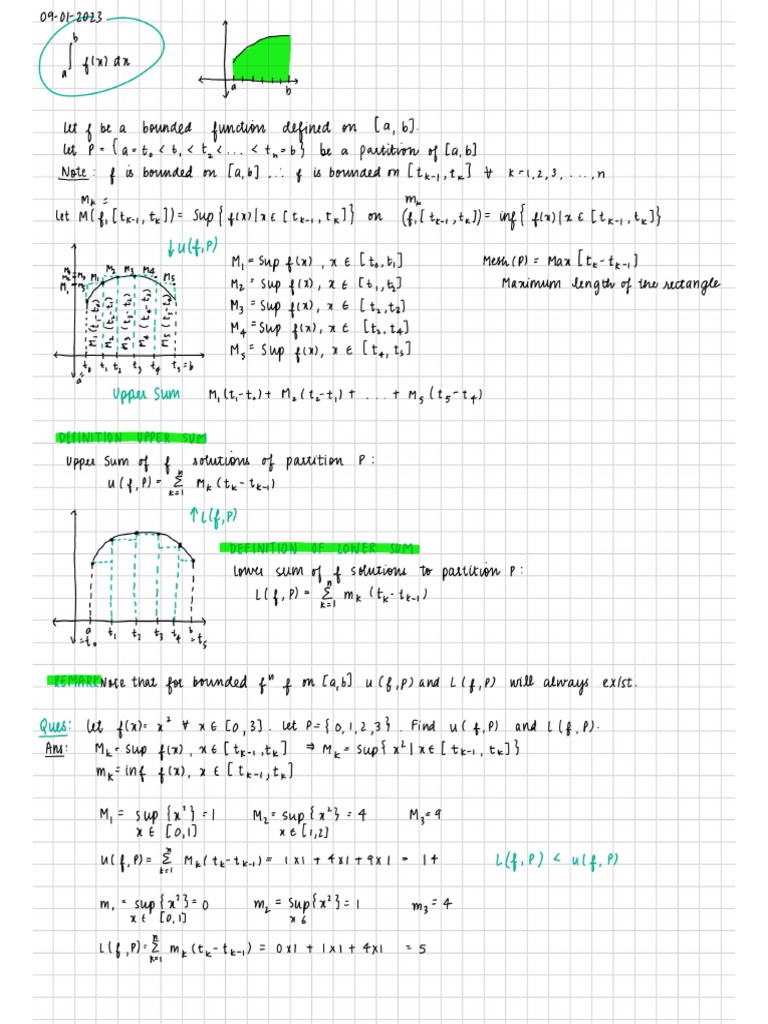 09-01-2023
∫ₐᵇ f(x) dx
a b
let f be a bounded function defined on [a, b].
let P = {a = t₀ < t₁ < t₂ < ... < tₙ = b} be a partition of [a, b]
Note: f is bounded on [a, b], ∴ f is bounded on [tₖ₋₁, tₖ] ∀ k = 1, 2, 3, ..., n
Mₖ = mₖ
let M(f, [tₖ₋₁, tₖ]) = sup{f(x) | x ∈ [tₖ₋₁, tₖ]} on (f, [tₖ₋₁, tₖ]) = inf{f(x) | x ∈ [tₖ₋₁, tₖ]}
↓ U(f, P)
M₁ = sup f(x), x ∈ [t₀, t₁] Mesh(P) = Max [tₖ - tₖ₋₁]
M₂ = sup f(x), x ∈ [t₁, t₂] Maximum length of the rectangle
M₃ = sup f(x), x ∈ [t₂, t₂]
M₄ = sup f(x), x ∈ [t₃, t₄]
M₅ = sup f(x), x ∈ [t₄, t₅]
M₁ M₂ M₃ M₄ M₅
M₁(t₁-t₀) M₂(t₂-t₁) M₃(t₃-t₂) M₄(t₄-t₃) M₅(t₅-t₄)
a = t₀ t₁ t₂ t₃ t₄ t₅ = b
Upper Sum M₁(t₁-t₀) + M₂(t₂-t₁) + ... + M₅(t₅-t₄)
DEFINITION UPPER SUM
Upper Sum of f solutions of partition P:
U(f, P) = Σₖ₌₁ⁿ Mₖ(tₖ - tₖ₋₁)
↑ L(f, P)
DEFINITION OF LOWER SUM
Lower sum of f solutions to partition P:
L(f, P) = Σₖ₌₁ⁿ mₖ (tₖ - tₖ₋₁)
a = t₀ t₁ t₂ t₃ t₄ b = t₅
REMARK Note that for bounded fⁿ f on [a, b] U(f, P) and L(f, P) will always exist.
Ques: let f(x) = x² ∀ x ∈ [0, 3]. let P = {0, 1, 2, 3}. Find U(f, P) and L(f, P).
Ans: Mₖ = sup f(x), x ∈ [tₖ₋₁, tₖ] ⇒ Mₖ = sup{x² | x ∈ [tₖ₋₁, tₖ]}
mₖ = inf f(x), x ∈ [tₖ₋₁, tₖ]
M₁ = sup {x²} = 1 M₂ = sup {x²} = 4 M₃ = 9
x ∈ [0, 1] x ∈ [1, 2]
U(f, P) = Σₖ₌₁ⁿ Mₖ(tₖ - tₖ₋₁) = 1x1 + 4x1 + 9x1 = 14 L(f, P) < U(f, P)
m₁ = sup {x²} = 0 m₂ = sup {x²} = 1 m₃ = 4
x ∈ [0, 1] x ∈
L(f, P) = Σₖ₌₁ⁿ mₖ (tₖ - tₖ₋₁) = 0x1 + 1x1 + 4x1 = 5